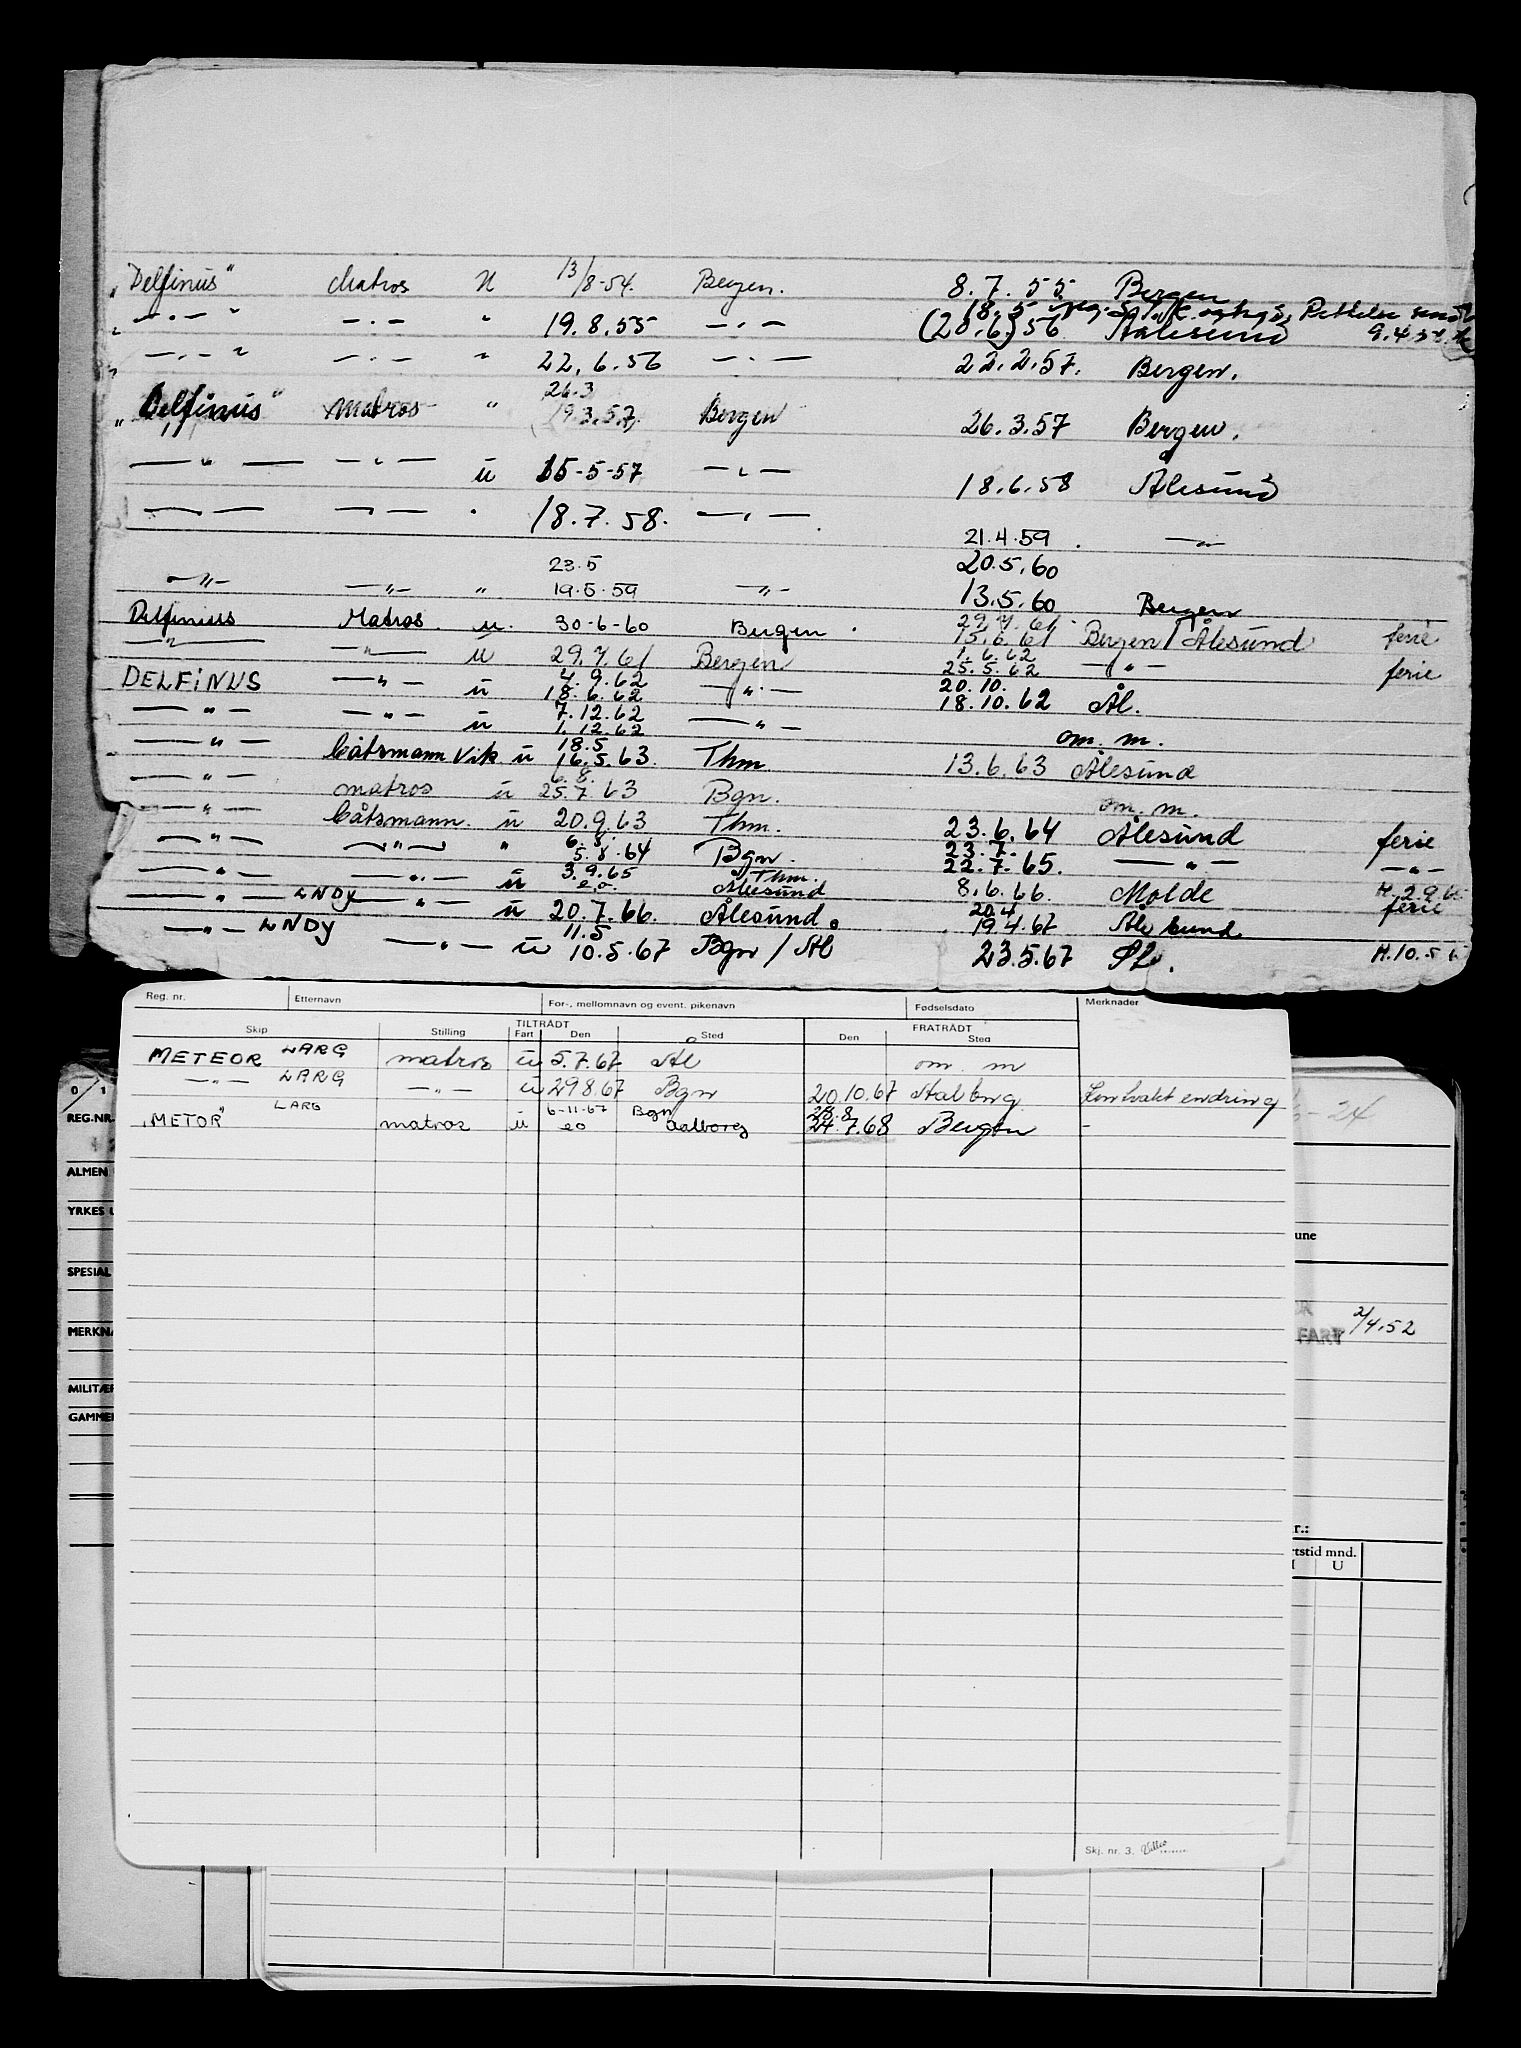 „Delfinus" Matros U 13/8-54. Bergen. 8.7.55 Bergen
„ —〃— " —〃— " 19.8.55 —〃— (20.6.) 56 Aalesund 9.4.58
„ —〃— " —〃— " 22.6.56 —〃— 22.2.57. Bergen.
26.3
„Delfinus" Matros " 19.3.57. Bergen 26.3.57 Bergen.
—〃— —〃— ü 15-5-57 —〃— 18.6.58 Ålesund
—〃— —〃— " 18.7.58. —〃— 21.4.59. —〃—
23.5 20.5.60
—〃— —〃— " 19.5.59 —〃— 13.5.60 Bergen
Delfinius Matros. u. 30-6-60 Bergen. 29.7.61 15.6.61 Bergen/Ålesund ferie
—〃— —〃— ü 29.7.61 Bergen 1.6.62 25.5.62 —〃— ferie
DELFINUS —〃— ü 4.9.62 18.6.62 —〃— 20.10. 18.10.62 Ål.
—〃— —〃— ü 7.12.62 1.12.62 —〃— om. m.
—〃— Båtsmann Vik ü 18.5 16.5.63. Thm 13.6.63 Ålesund
—〃— matros ü 6.8. 25.7.63 Bgn. om. m.
—〃— Båtsmann. ü 20.9.63 Thm. 23.6.64 Ålesund ferie
—〃— —〃— " 6.8. 5.8.64 Bgn. 23.7. 22.7.65. —〃— —〃—
—〃— —〃— ü 3.9.65 e.o. Thm. Ålesund 8.6.66. Molde H. 2.9.65
—〃— LNDY —〃— ü 20.7.66. Ålesund. 20.4 19.4.67 Ålesund ferie
—〃— LNDY —〃— ü 11.5 10.5.67 Bgn / Ål 23.5.67 H. 10.5
Reg. nr. Etternavn For-, mellomnavn og event. pikenavn Fødselsdato Merknader
TILTRÅDT FRATRÅDT
Skip Stilling Fart Den Sted Den Sted
METEOR LARG matros ü 5.7.67 Ål om. m
—〃— LARG —〃— ü 29.8.67 Bgn 20.10.67 Aalborg endring
„METOR" LARG matros ü 6-11-67 eo Bgn Aalborg 28.8 24.7.68 Bergen -
0/1
REG.NR.
24
ALMEN
YRKES U
une
SPESIAL
MERKNA
FART 2/4.52
MILITÆR
GAMMEL
r.:
rtstid mnd.
U
Skj. nr. 3.